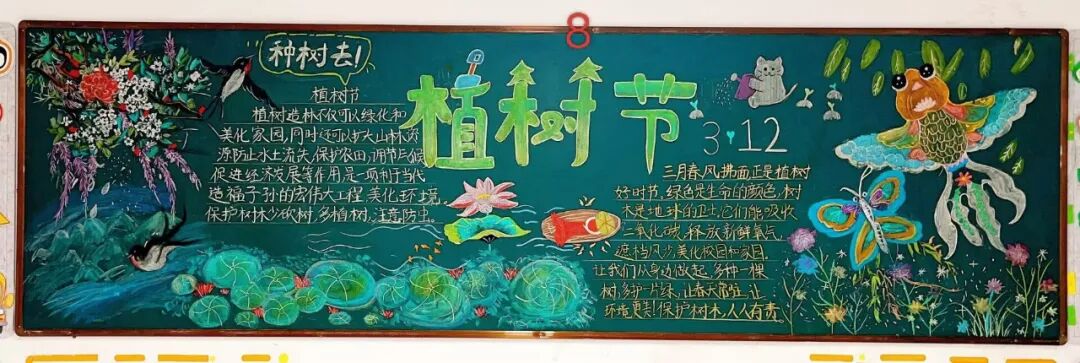 8
种树去!
植树节
3 12
植树节
植树造林不仅可以绿化和
美化家园,同时还可以扩大山林资
源防止水土流失,保护农田,调节气候
促进经济发展等作用是一项利于当代
造福子孙的宏伟大工程,美化环境。
保护树木少砍树,多植树,注意防虫。
三月春风拂面正是植树
好时节,绿色是生命的颜色,树
木是地球的卫士,它们能吸收
二氧化碳,释放新鲜氧气,
遮挡风沙,美化校园和家园,
让我们从身边做起,多种一棵
树,多护一片绿,让春天常驻,让
环境更美!保护树木人人有责